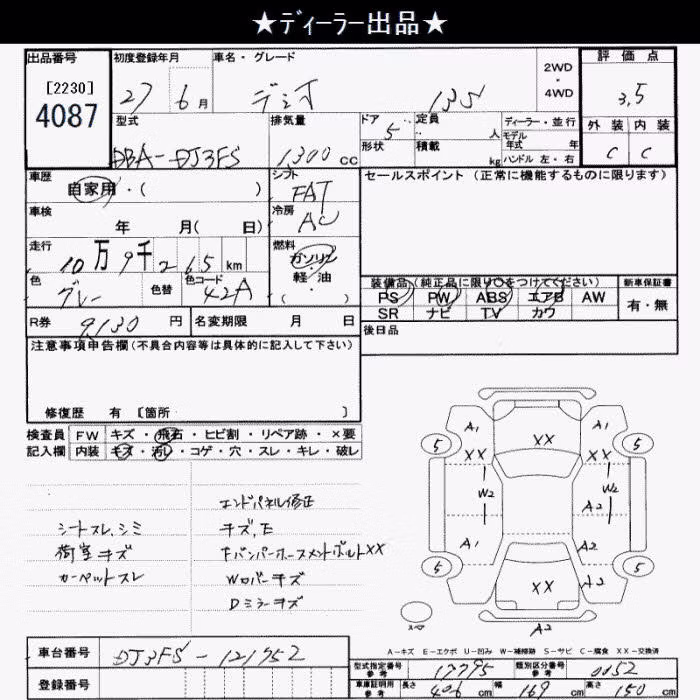 ★ディーラー出品★
出品番号
[2230]
4087
初度登録年月
27 6月
車名・グレード
デミオ 13S
2WD
・
4WD
評価点
3.5
外装 内装
C C
型式
DBA-DJ3FS
排気量
1,300 cc
ドア 5
形状
定員 人
積載 kg
ディーラー・並行
モデル年式 年
ハンドル 左・右
車歴
自家用・( )
シフト
FAT
セールスポイント (正常に機能するものに限ります)
車検
年 月( 日)
冷房
AC
走行
10万9千265km
燃料
ガソリン
・
軽・油
( )
色
グレー
色替
色コード
42A
装備品(純正品に限り○をつけてください)
PS PW ABS エアB AW
SR ナビ TV カワ
新車保証書
有・無
R券 9,130円
名変期限 月 日
後日品
注意事項申告欄(不具合内容等は具体的に記入して下さい)
修復歴 有 [箇所 ]
検査員
記入欄
FW キズ・飛石・ヒビ割・リペア跡・×要
内装 キズ・汚レ・コゲ・穴・スレ・キレ・破レ
シートスレ、シミ
荷室キズ
カーペットスレ
エンドパネル修正
キズ、E
Fバンパーホースメントボルト××
Wカバーキズ
Dミラーキズ
A1 XX A1
5 XX XX 5
W2 W2
A2
A1 A2
5 XX A2 5
A2
A-キズ E-エクボ U-凹み W-補修跡 S-サビ C-腐食 XX-交換済
車台番号 DJ3FS-121752
登録番号
型式指定番号 参考 17795
類別区分番号 参考 0052
車庫証明用 参考 長さ 406 cm 幅 169 cm 高さ 150 cm